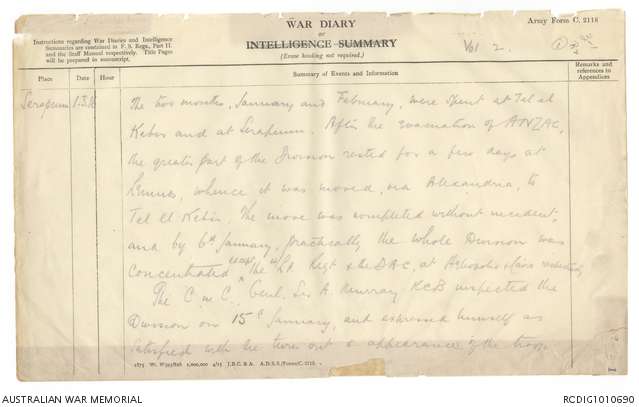 WAR DIARY
or
INTELLIGENCE SUMMARY
(Erase heading not required.)
Army Form C. 2118
Instructions regarding War Diaries and Intelligence
Summaries are contained in F. S. Regs., Part II.
and the Staff Manual respectively. Title Pages
will be prepared in manuscript.
Vol 2.
Place
Date
Hour
Summary of Events and Information
Remarks and
references to
Appendices
Serapeum 1.3.16
The two months, January and February, were spent at Tel el
Kebir and at Serapeum. After the evacuation of ANZAC,
the greater part of the Division rested for a few days at
Lemnos, whence it was moved, via Alexandria, to
Tel El Kebir. The move was completed without incident;
and by 6th January, practically the whole Division was
concentrated except the Lt. Regt & the D.A.C. at Heliopolis &
The C in C, Genl. Sir A. Murray KCB inspected the
Division on 15th January, and expressed himself as
satisfied with the turn out & appearance of the troops
1875 Wt. W593/826 1,000,000 4/15 J.B.C. & A. A.D.S.S./Forms/C. 2118.
AUSTRALIAN WAR MEMORIAL
RCDIG1010690